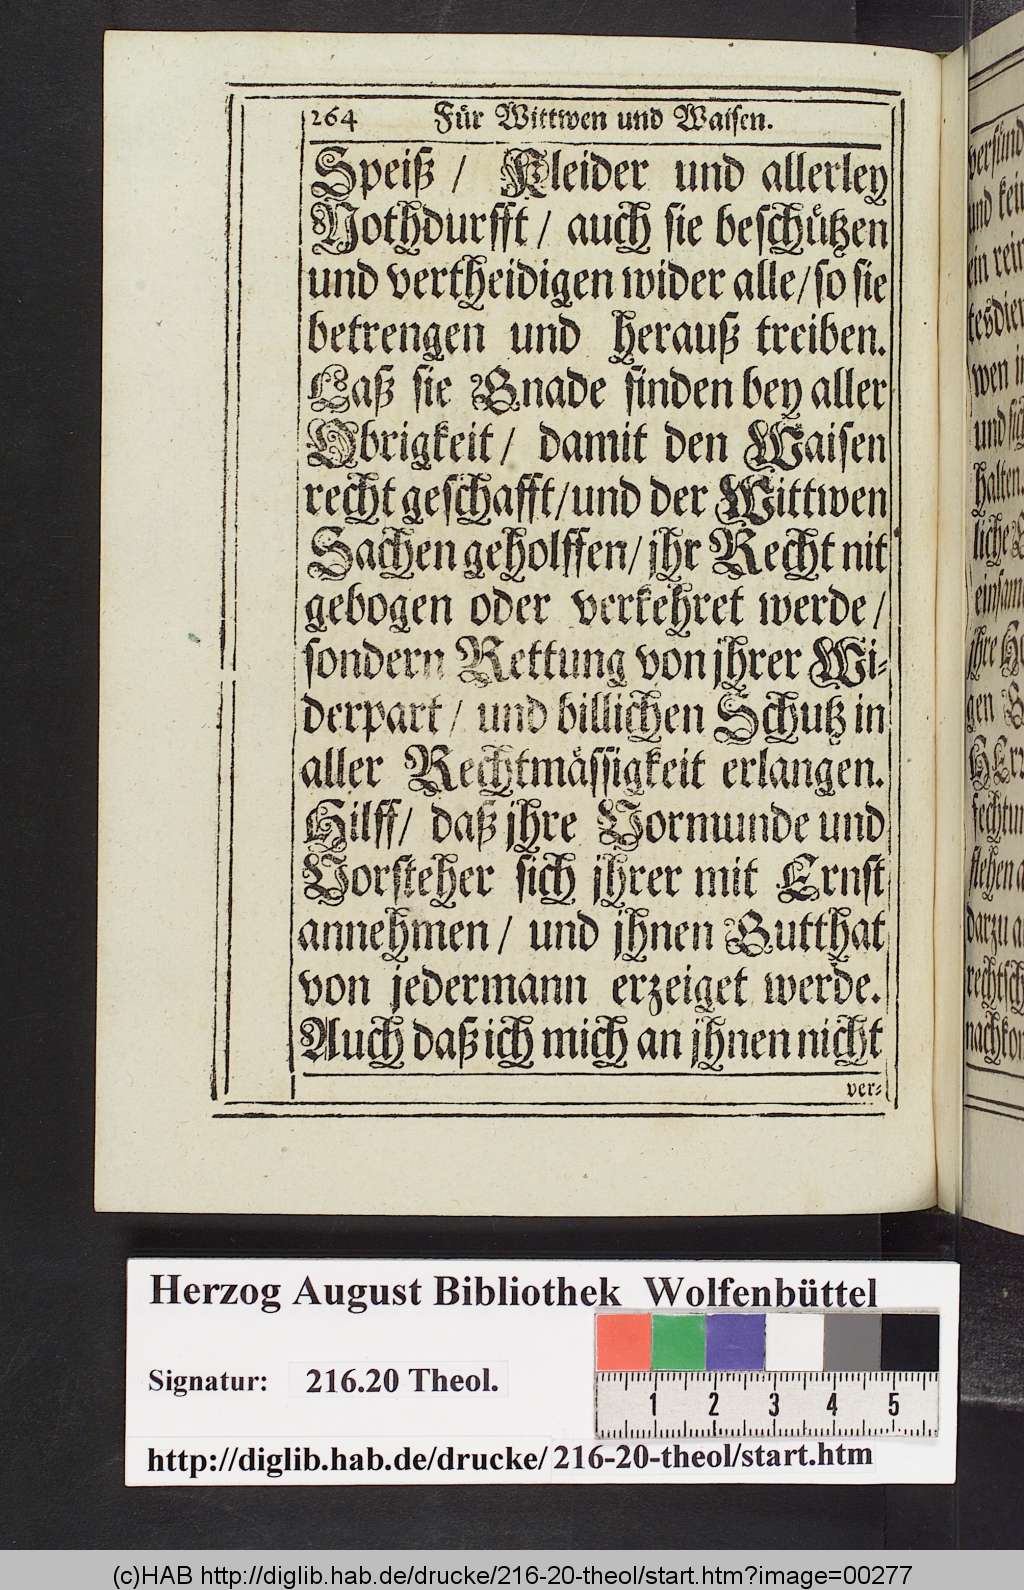 264 Für Wittwen und Waisen.
Speiß / Kleider und allerley
Nothdurfft / auch sie beschützen
und vertheidigen wider alle / so sie
betrengen und herauß treiben.
Laß sie Gnade finden bey aller
Obrigkeit / damit den Waisen
recht geschafft / und der Wittwen
Sachen geholffen / jhr Recht nit
gebogen oder verkehret werde /
sondern Rettung von jhrer Wi-
derpart / und billichen Schutz in
aller Rechtmässigkeit erlangen.
Hilff / daß jhre Vormunde und
Vorsteher sich jhrer mit Ernst
annehmen / und jhnen Gutthat
von jedermann erzeiget werde.
Auch daß ich mich an jhnen nicht
ver-
Herzog August Bibliothek Wolfenbüttel
Signatur: 216.20 Theol.
1 2 3 4 5
http://diglib.hab.de/drucke/ 216-20-theol/start.htm
(c)HAB http://diglib.hab.de/drucke/216-20-theol/start.htm?image=00277